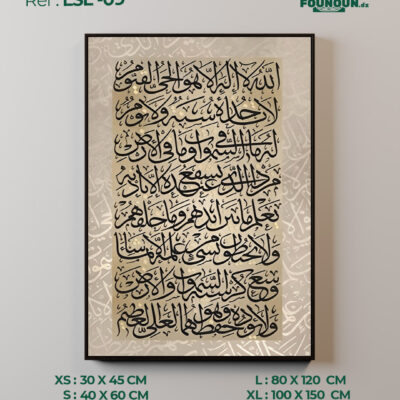 Ref : LSL -09
FOUNOUN.dz
الله لا إله إلا هو الحي القيوم
لا تأخذه سنة ولا نوم
له ما في السموات وما في الأرض
من ذا الذي يشفع عنده إلا بإذنه
يعلم ما بين أيديهم وما خلفهم
ولا يحيطون بشيء من علمه إلا بما شاء
وسع كرسيه السموات والأرض
ولا يؤده حفظهما وهو العلي العظيم
XS : 30 X 45 CM
S : 40 X 60 CM
L : 80 X 120 CM
XL : 100 X 150 CM